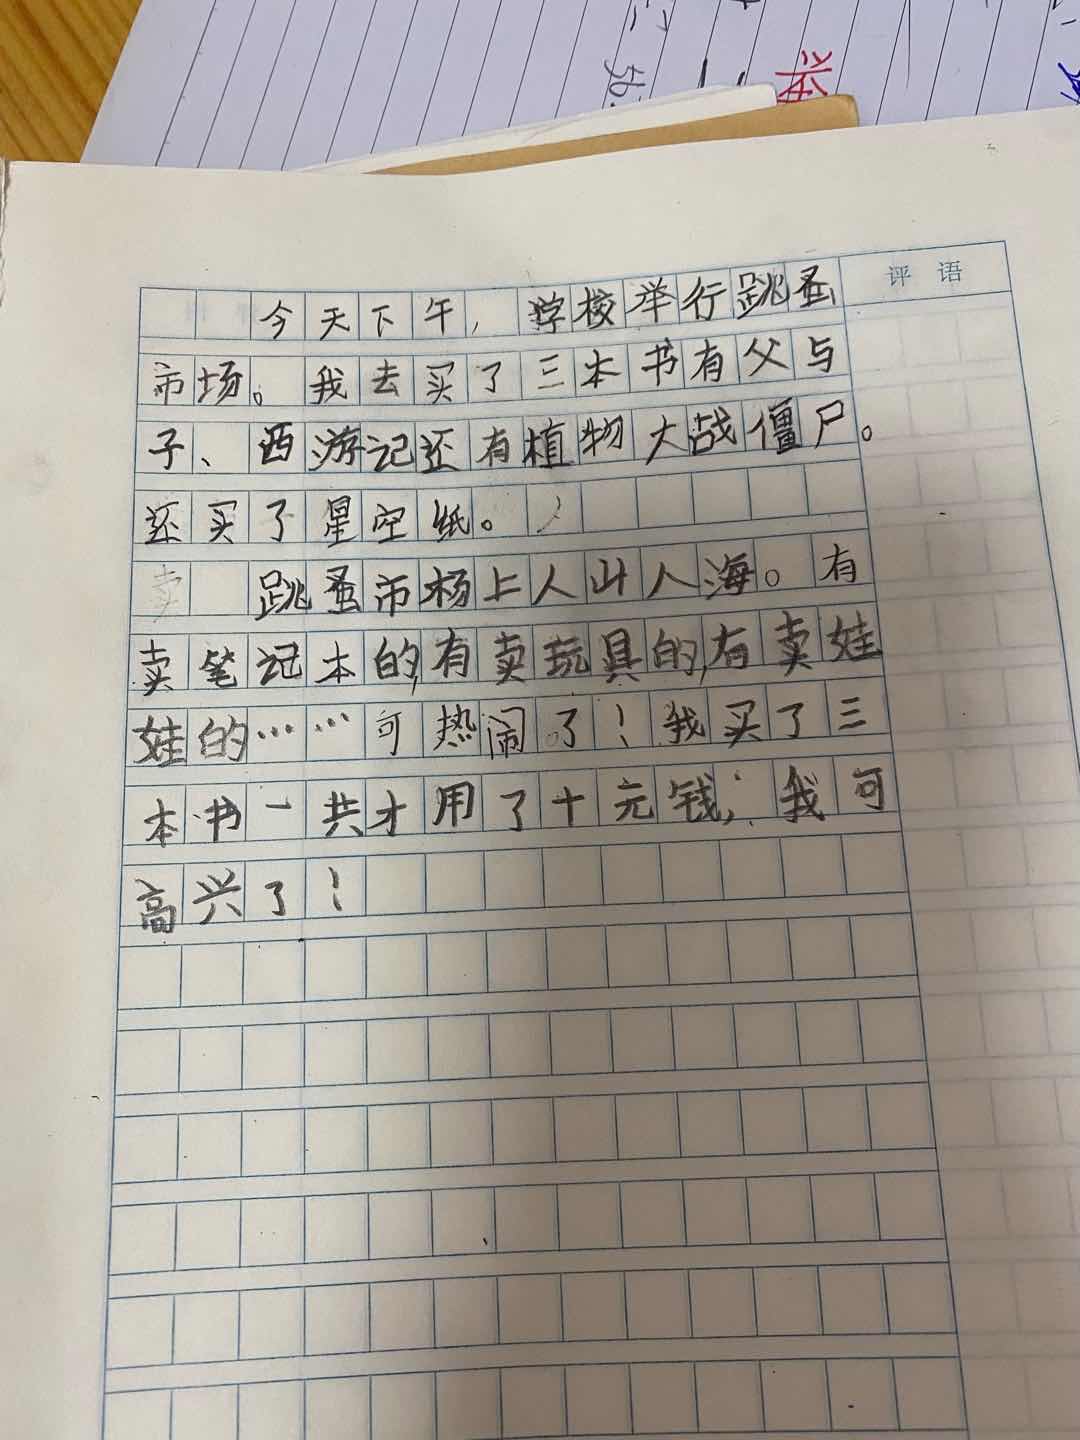 评语
今天下午,学校举行跳蚤
市场。我去买了三本书有父与
子、西游记还有植物大战僵尸。
还买了星空纸。
卖 跳蚤市杨上人山人海。有
卖笔记本的,有卖玩具的,有卖娃
娃的……可热闹了!我买了三
本书一共才用了十元钱,我可
高兴了!